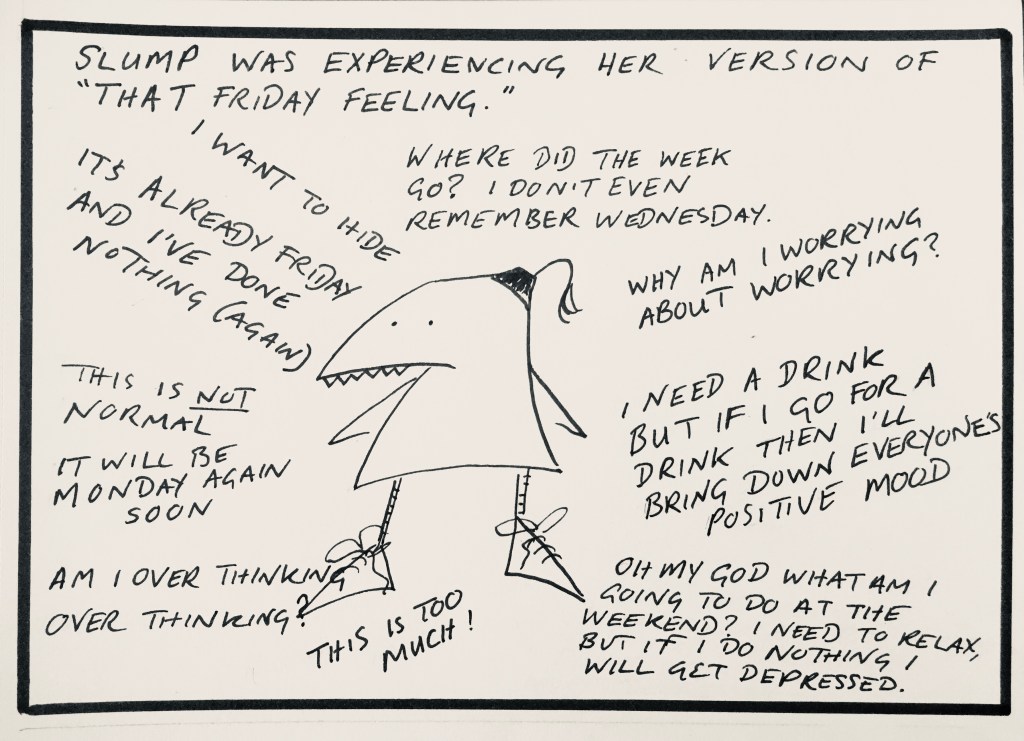 SLUMP WAS EXPERIENCING HER VERSION OF
"THAT FRIDAY FEELING."
I WANT TO HIDE
IT'S ALREADY FRIDAY
AND I'VE DONE
NOTHING (AGAIN)
WHERE DID THE WEEK
GO? I DON'T EVEN
REMEMBER WEDNESDAY.
WHY AM I WORRYING
ABOUT WORRYING?
THIS IS NOT
NORMAL
IT WILL BE
MONDAY AGAIN
SOON
I NEED A DRINK
BUT IF I GO FOR A
DRINK THEN I'LL
BRING DOWN EVERYONE'S
POSITIVE MOOD
AM I OVER THINKING
OVER THINKING?
THIS IS TOO
MUCH!
OH MY GOD WHAT AM I
GOING TO DO AT THE
WEEKEND? I NEED TO RELAX,
BUT IF I DO NOTHING I
WILL GET DEPRESSED.